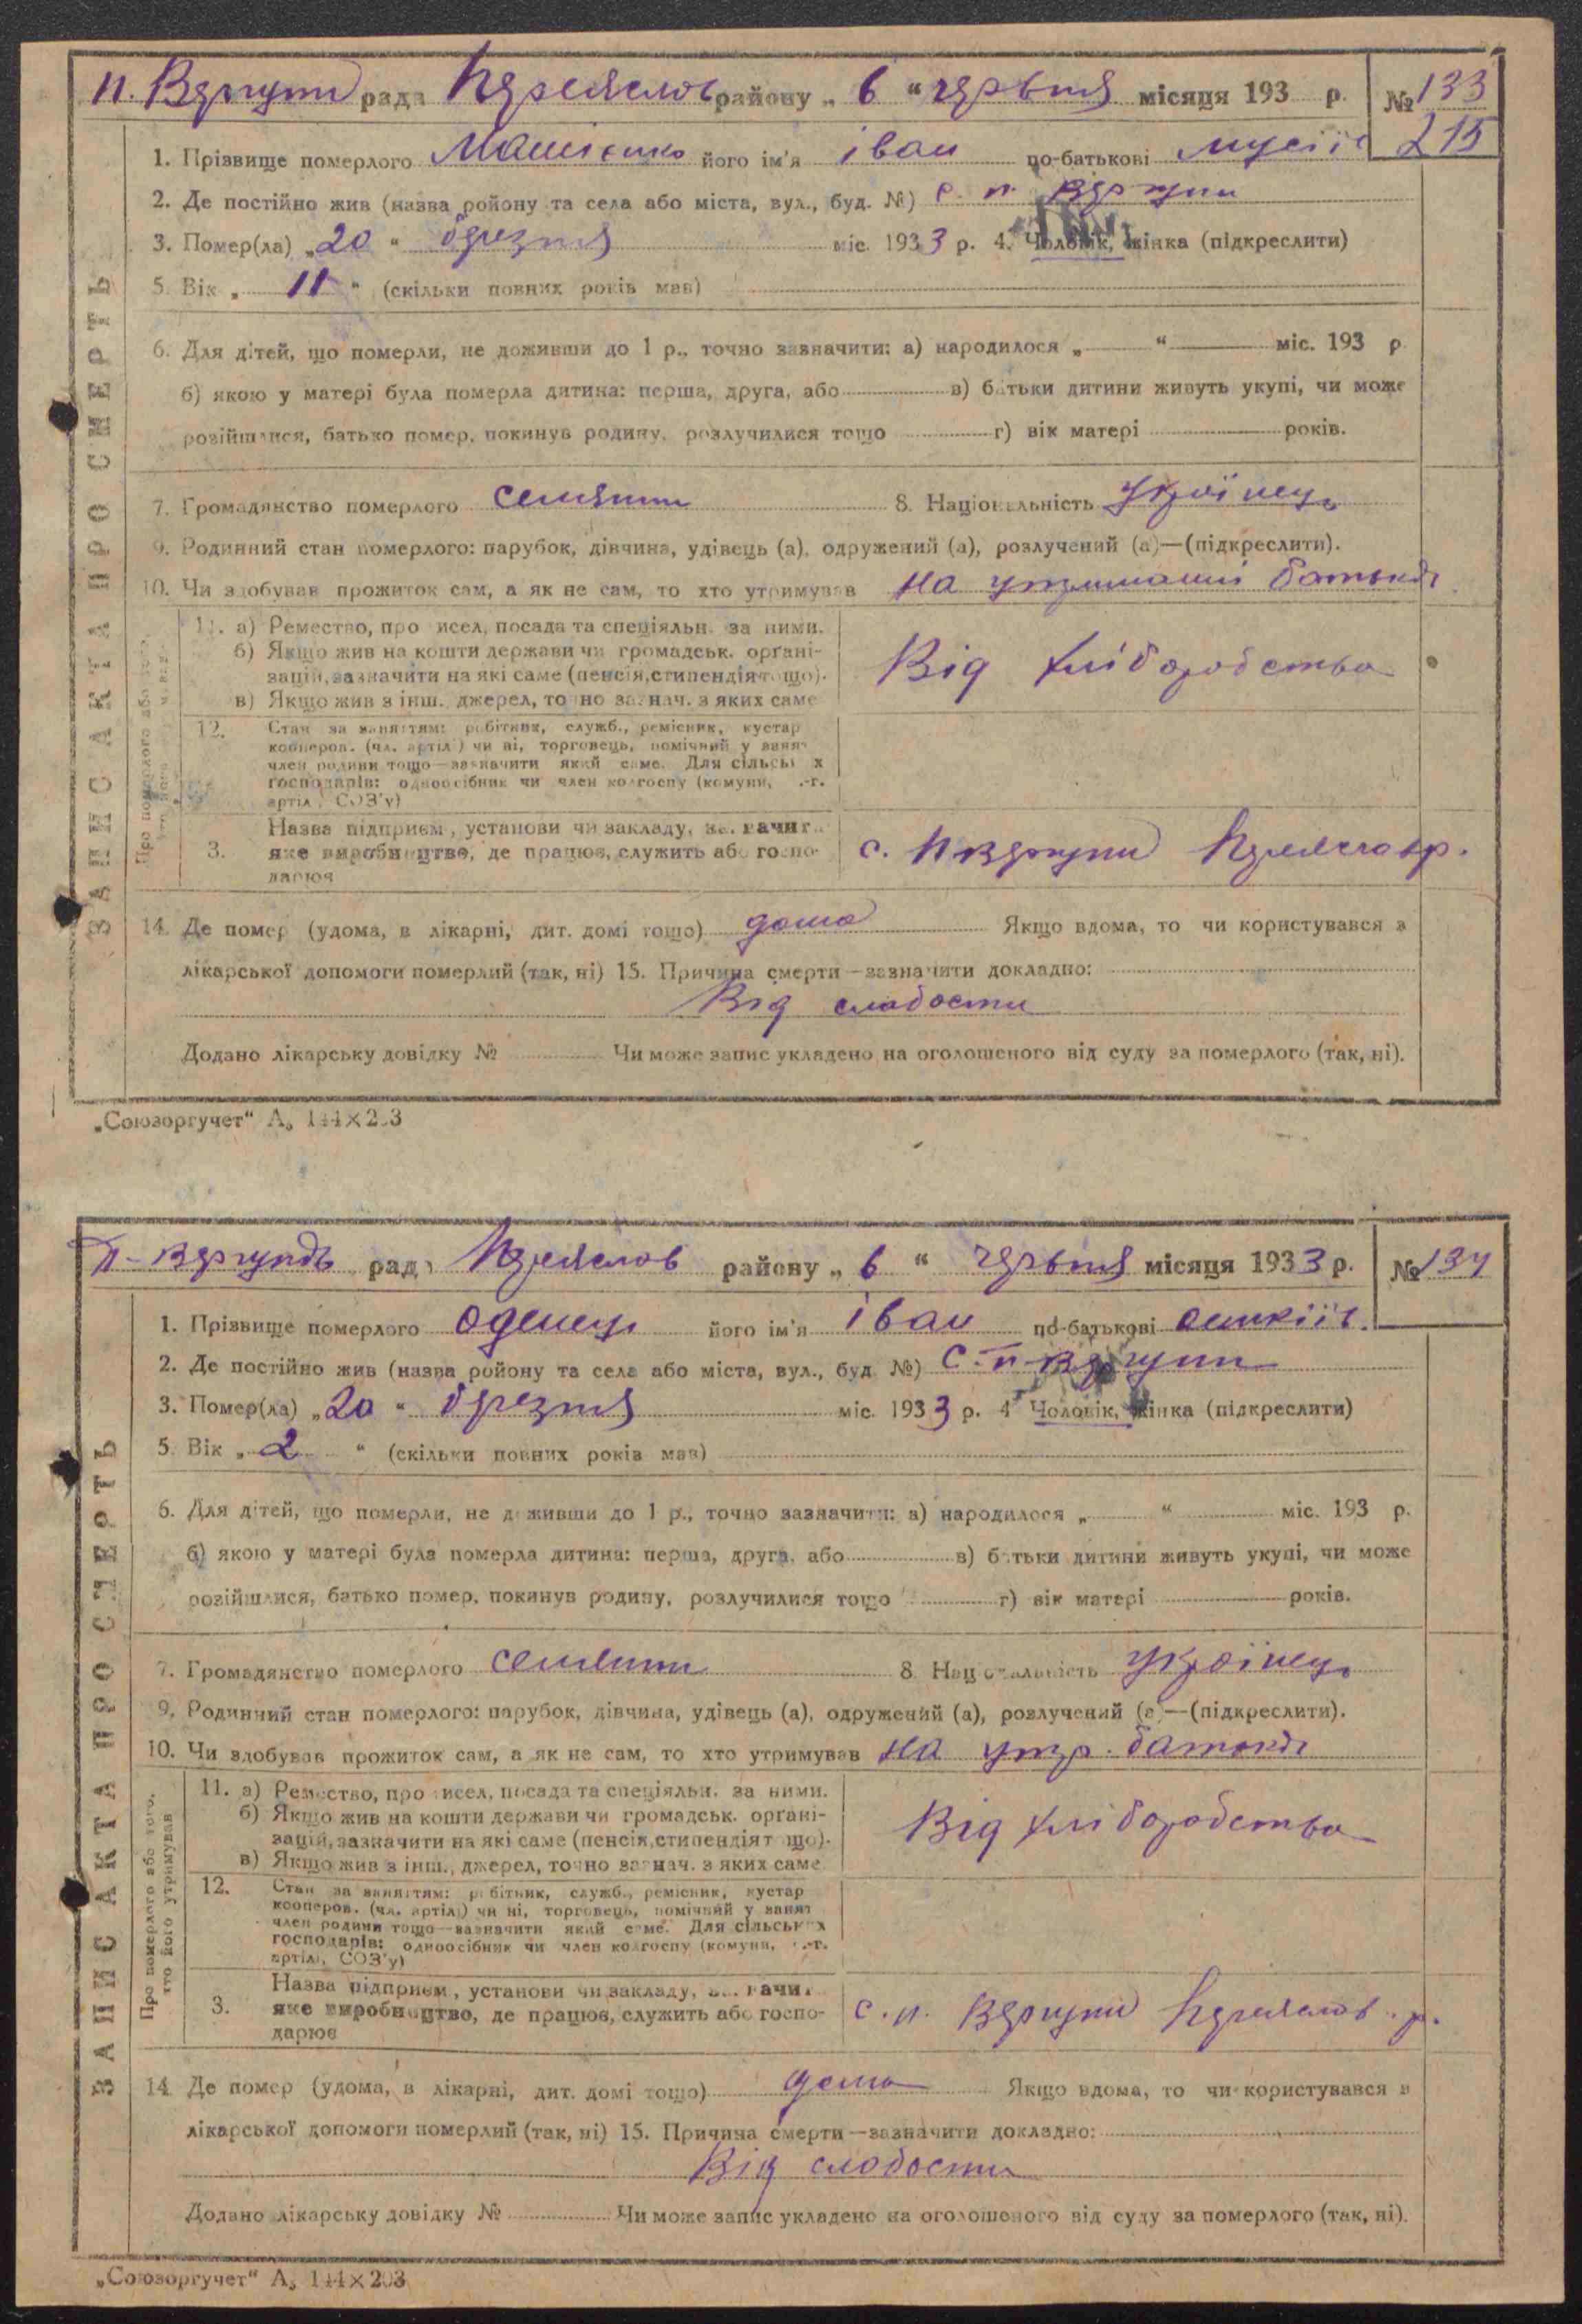 п. Вергуни рада Переяслов району „ 6 “ червня місяця 193 р. № 133
215
1. Прізвище померлого Машієнко його ім'я іван по-батькові мусіїв
2. Де постійно жив (назва ройону та села або міста, вул., буд. №) с. п. Вергуни
3. Помер(ла) „ 20 “ березня міс. 1933 р. 4. Чоловік, жінка (підкреслити)
5. Вік „ 11 “ (скільки повних років мав)
6. Для дітей, що померли, не доживши до 1 р., точно зазначити: а) народилося „ “ міс. 193 р
б) якою у матері була померла дитина: перша, друга, або в) батьки дитини живуть укупі, чи може
розійшлися, батько помер, покинув родину, розлучилися тощо г) вік матері років.
7. Громадянство померлого селянин 8. Національність Українець
9. Родинний стан померлого: парубок, дівчина, удівець (а), одружений (а), розлучений (а)—(підкреслити).
10. Чи здобував прожиток сам, а як не сам, то хто утримував на утриманні батьків
11. а) Ремество, про исел, посада та спеціяльн. за ними.
б) Якщо жив на кошти держави чи громадськ. орґані-
зацій, зазначити на які саме (пенсія, стипендія тощо).
в) Якщо жив з інш. джерел, точно зазнач. з яких саме
Від хліборобства
12. Стан за заняттям: робітник, служб., ремісник, кустар
кооперов. (чл. артілі) чи ні, торговець, помічний у занят
член родини тощо—зазначити який саме. Для сільськ х
господарів: одноосібник чи член колгоспу (комуни, .-г.
артіл, СОЗ'у)
3. Назва підприєм, установи чи закладу, за. начит
яке виробництво, де працює, служить або госпо-
дарює
с. п Вергуни Переяслов р.
14. Де помер (удома, в лікарні, дит. домі тощо) дома Якщо вдома, то чи користувався з
лікарської допомоги померлий (так, ні) 15. Причина смерти—зазначити докладно:
Від слабости
Додано лікарську довідку № Чи може запис укладено на оголошеного від суду за померлого (так, ні).
ЗАПИС АКТА ПРО СМЕРТЬ
„Союзоргучет“ А₅ 144×203
п-Вергунів рада Переяслов району „ 6 “ червня місяця 1933 р. № 134
1. Прізвище померлого Оденець його ім'я іван по-батькові
2. Де постійно жив (назва ройону та села або міста, вул., буд. №) с-п-Вергуни
3. Помер(ла) „ 20 “ березня міс. 1933 р. 4 Чоловік, жінка (підкреслити)
5. Вік „ 2 “ (скільки повних років мав)
6. Для дітей, що померли, не доживши до 1 р., точно зазначити: а) народилося „ “ міс. 193 р.
б) якою у матері була померла дитина: перша, друга, або в) батьки дитини живуть укупі, чи може
розійшлися, батько помер, покинув родину, розлучилися тощо г) вік матері років.
7. Громадянство померлого селянин 8. Національність Українець
9. Родинний стан померлого: парубок, дівчина, удівець (а), одружений (а), розлучений (а)—(підкреслити).
10. Чи здобував прожиток сам, а як не сам, то хто утримував на утр. батьків
11. а) Ремество, про исел, посада та спеціяльн. за ними.
б) Якщо жив на кошти держави чи громадськ. орґані-
зацій, зазначити на які саме (пенсія, стипендіят що).
в) Якщо жив з інш., джерел, точно зазнач. з яких саме
Від хліборобства
12. Стан за заняттям: робітник, служб., ремісник, кустар
кооперов. (чл. артілі) чи ні, торговець, помічний у занят
член родини тощо—зазначити який саме. Для сільськ х
господарів: одноосібник чи член колгоспу (комуни, .-г.
артілі, СОЗ'у)
3. Назва підприєм, установи чи закладу, за. начи
яке виробництво, де працює, служить або госпо-
дарює
с. п. Вергуни Переяслов. р.
Про померлого або того,
хто його утримував
14. Де помер (удома, в лікарні, дит. домі тощо) дома Якщо вдома, то чи користувався з
лікарської допомоги померлий (так, ні) 15. Причина смерти—зазначити докладно:
Від слабости
Додано лікарську довідку № Чи може запис укладено на оголошеного від суду за померлого (так, ні).
ЗАПИС АКТА ПРО СМЕРТЬ
„Союзоргучет“ А₅ 144×203